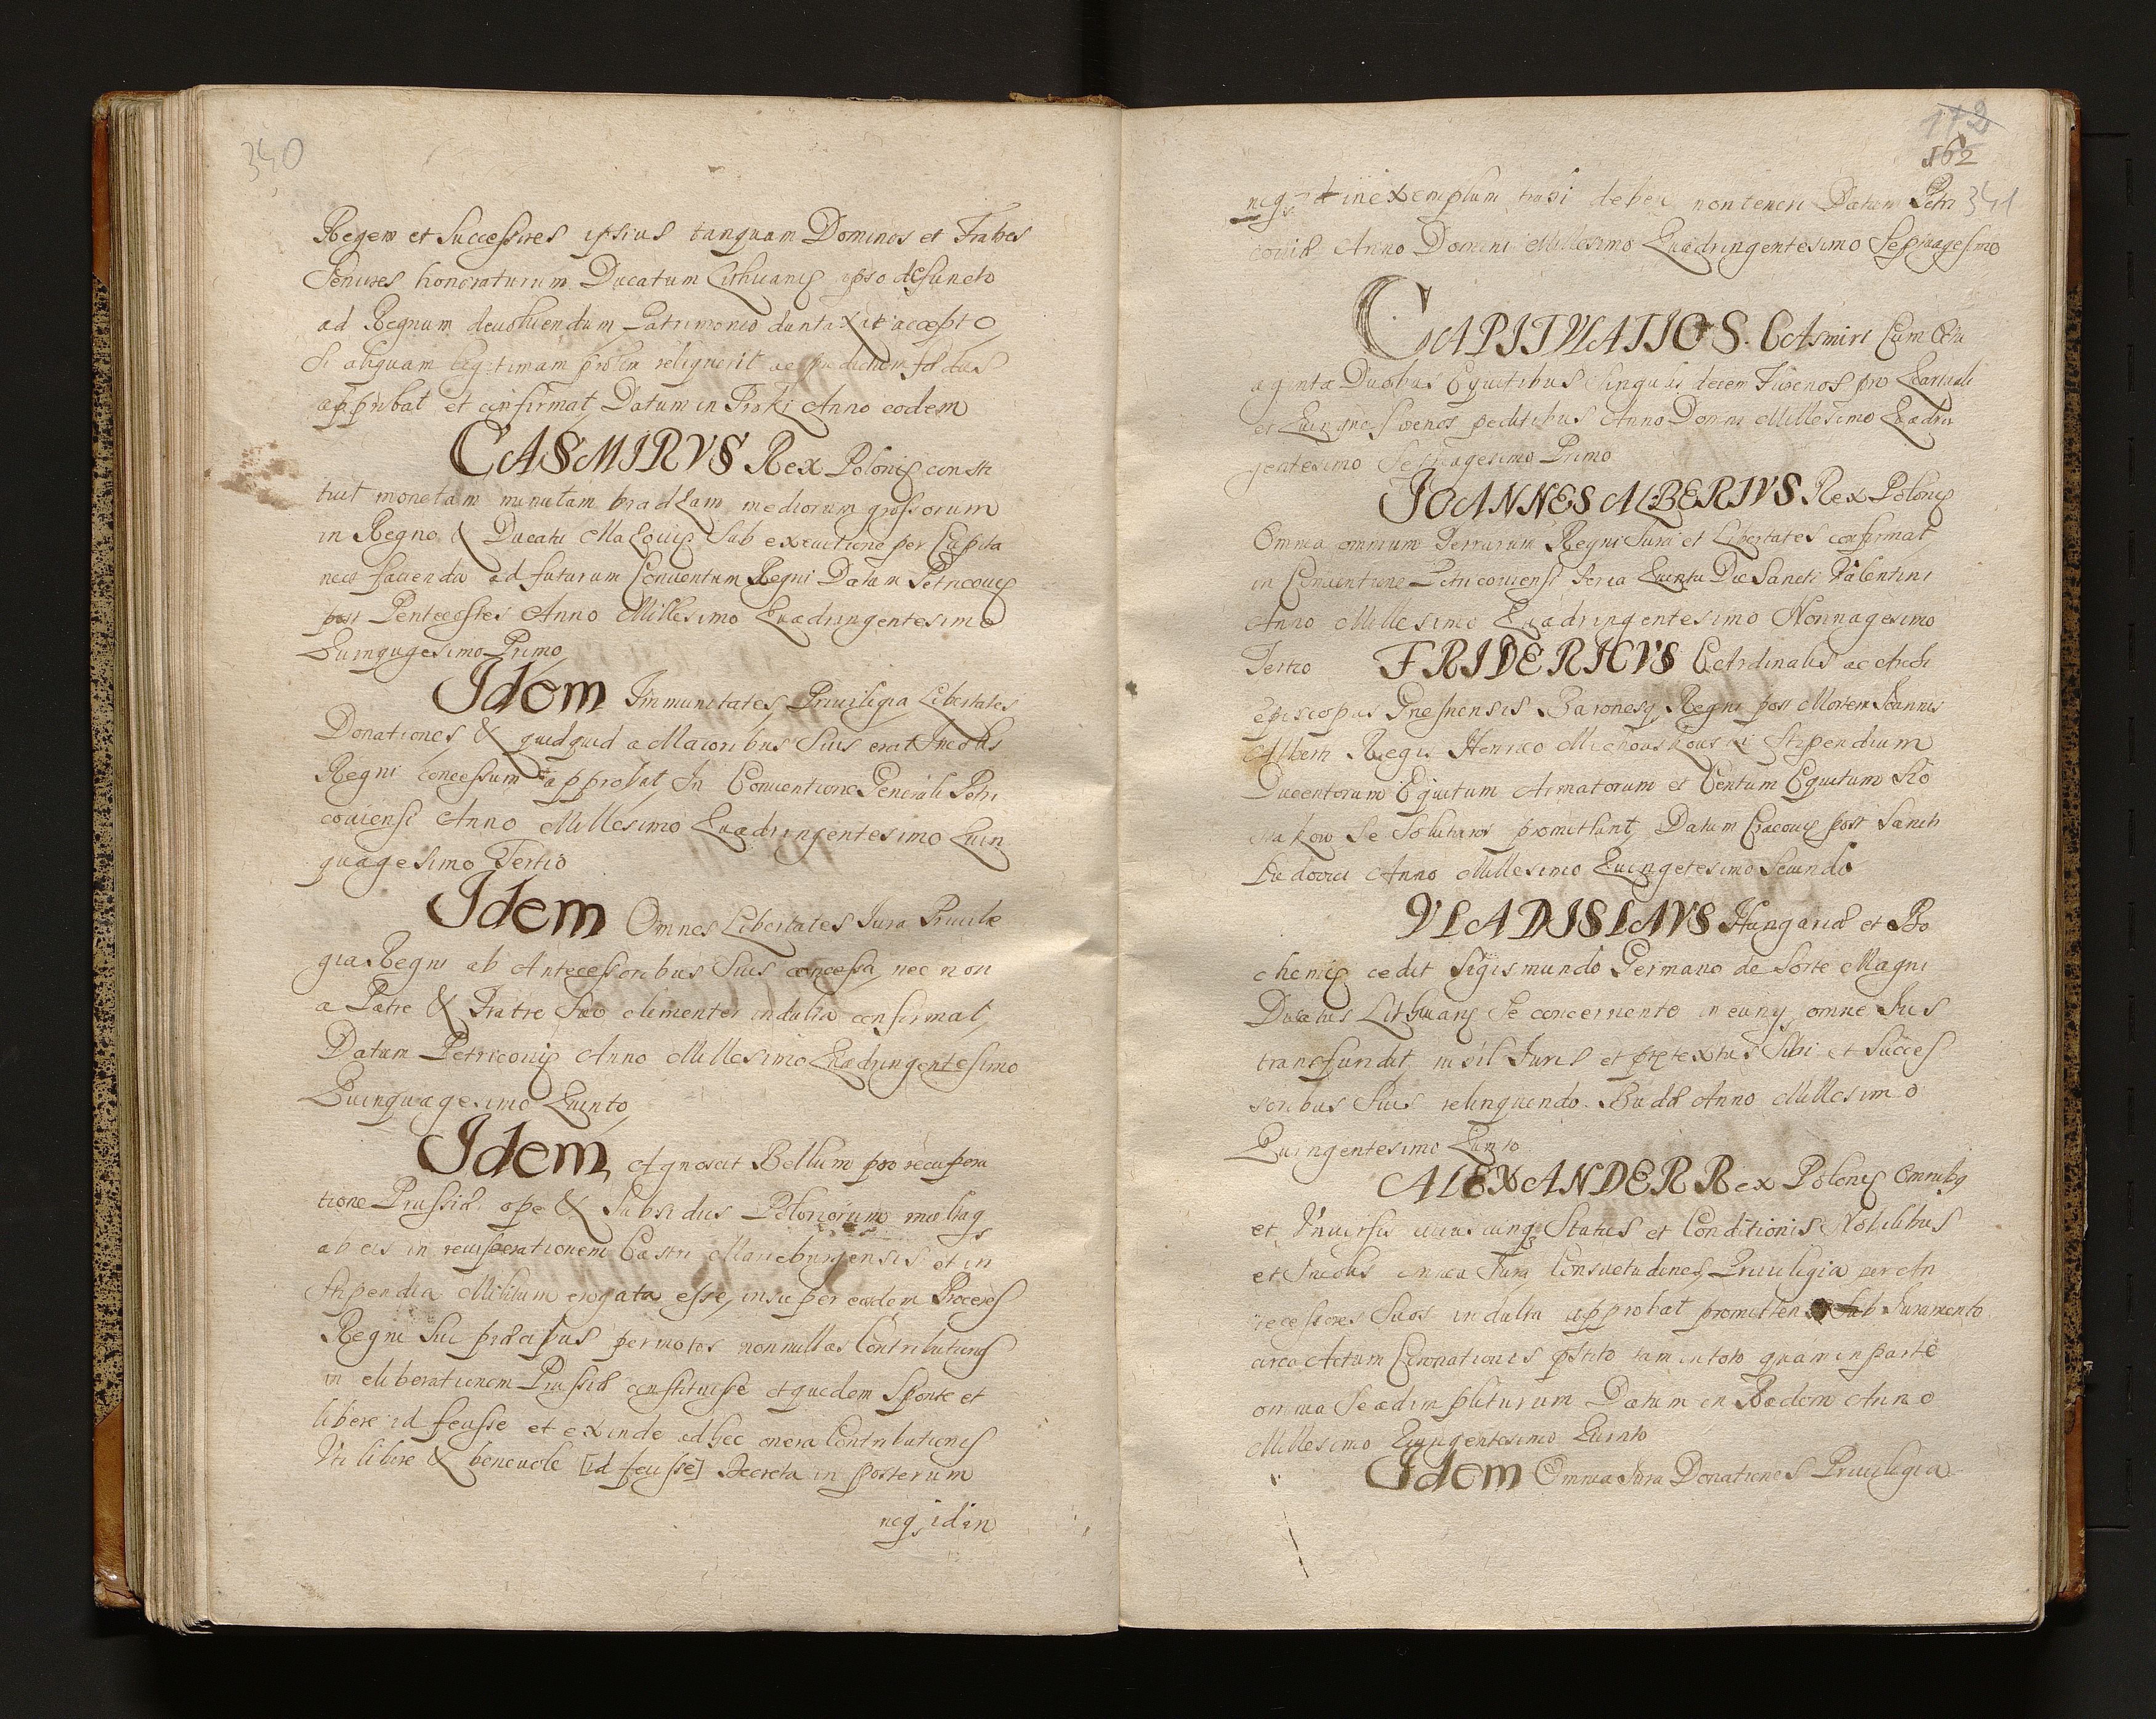 340
Regem et Successores ipsius tanquam Dominos et Fratres
Seniores honoraturum Ducatum Lithuanię ipso defuncto
ad Regnum devolvendum Patrimonio duntaxat accepto
Si aliquam legitimam prolem reliquerit ac prædictum fędus
approbat et confirmat, Datum in Troki Anno eodem
CASMIRVS Rex Polonię consti
tuit monetam minutam mediorum grossorum
in Regno & Ducatu Mazovię Sub executione per Capita
neos facienda ad futurum Conventum Regni Datum Petricovię
post Pentecostes Anno Millesimo Quadringentesimo
Quinquagesimo Primo
Idem Immunitates, Privilegia Libertates
Donationes & quidquid a Maioribus Suis erat Incolis
Regni concessum approbat, In Conventione Generali Petri
coviensi Anno Millesimo Quadringentesimo Quin
quagesimo Tertio
Idem Omnes Libertates Jura Privile
gia Regni ab Antecessoribus Suis concessa, nec non
a Patre & Fratre Suo clementer indulta confirmat,
Datum Petricovię Anno Millesimo Quadringentesimo
Quinquagesimo Quinto,
Idem, Agnoscit Bellum pro recupera
tione Prussiæ ope & Subsidiis Polonorum
ab eis in recuperationem Castri Marieburgensis et in
Stipendia Militum erogata esse, insuper eosdem Proceres
Regni Sui præcibus permotos nonnullas Contributiones
in eliberationem Prussiæ constituisse et quędem Sponte et
libere id fecisse et exinde ad hęc onera Contributionis
Vti libere & benevole [id fecisse] Decreta in posterum
neq, id in
172
162
341
neq, id in exemplum trahi debere non teneri Datum Petri
coviæ Anno Domini Millesimo Quadringentesimo Septuagesimo
CAPITVLATIO S. CAsmiri Cum
aginta Duobus Equitibus Singulis decem florenos pro Quartali
et Quinque florenos peditibus Anno Domini Millesimo Quadrin
gentesimo Septuagesimo Primo
JOANNES ALBERTVS Rex Polonię
Omnia omnium Terrarum Regni Jura et Libertates confirmat,
in Conventione Petricoviensi feria Quinta Die Sancti Valentini
Anno Millesimo Quadringentesimo Nonnagesimo
Tertio FRIDERICVS CArdinalis ac Archi
episcopus Gnesnensis Baronesq, Regni post Mortem Joannis
Alberti Regis Henrico Stipendium
Ducentorum Equitum Armatorum et Centum Equitum
Se Soluturos promittunt, Datum Cracovię post Sancti
Ludovici Anno Millesimo Quingetesimo Secundo
VLADISLAVS Hungariæ et Bo
hemię cedit Sigismundo Germano de Sorte Magni
Ducatus Lithuanię Se concernente in eumq, omne Jus
transfundit, nihil Juris et prętextus Sibi et Succes
soribus Suis relinquendo. Budæ Anno Millesimo
Quingentesimo Quinto
ALEXANDER Rex Polonię Omnibq
et Vniversis cuiuscunq, Status et Conditionis Nobilibus
et Incolis omnia Jura Consvetudines, Privilegia per An
tecessores Suos indulta approbat promitten Sub Juramento
circa Actum Coronationis pstito tam in toto quam in parte
omnia Se adimpliturum Datum in Radom Anno
Millesimo Quingentesimo Quinto
Idem Omnia Jura Donationes Privilegia